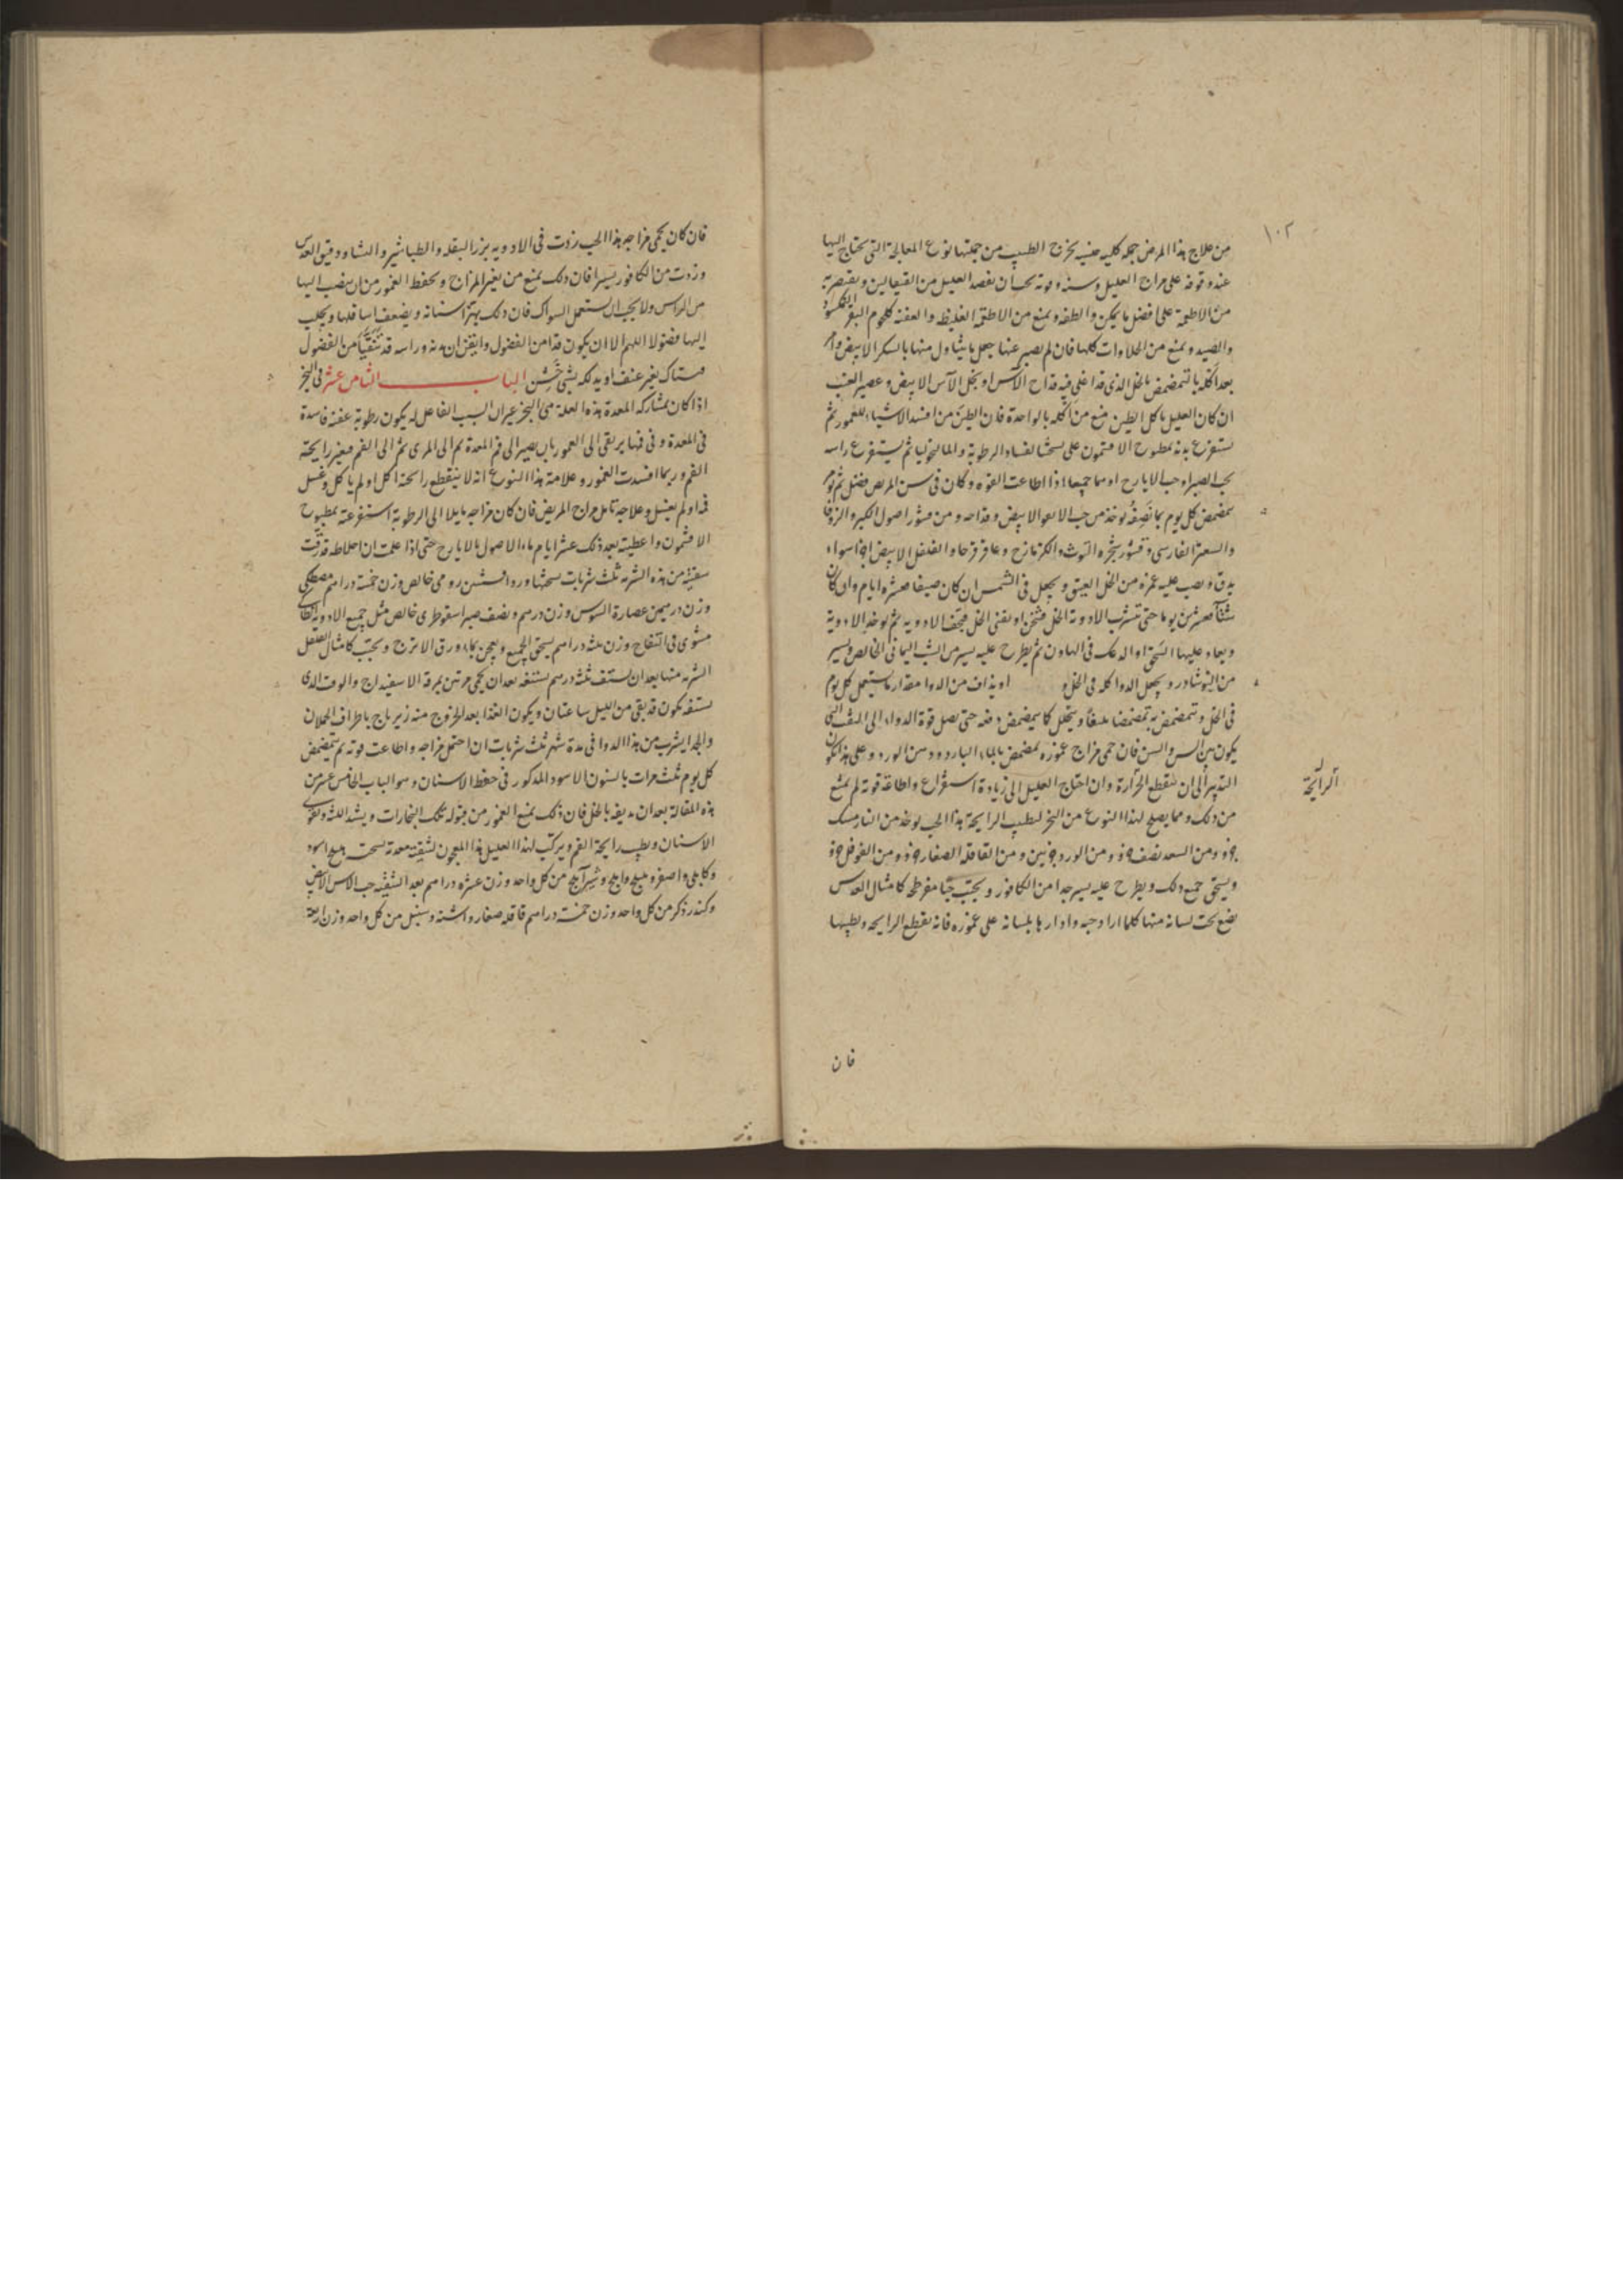 ١٠٢
من علاج هذا المرض جملة كلية حينيه يخرج الطبيب من جملتها نوع المعالجة التى يحتاج اليها
عند وقوفه على مزاج العليل وسنه وقوته يجب ان يفصد العليل من القيفالين ويقتصر به
من الاطعمة على افضل ما يمكن والطفه ويمنع من الاطعمة الغليظة والعفنة كلحوم البقر
والصيد ويمنع من الحلاوات كلها فان لم يصبر عنها جعل ما يتناول منها بالسكر الابيض
بعد اكله بالتمضمض بالخل الذى قد اغلى فيه قداح الآس او بخل الآس الابيض وعصير العنب
ان كان العليل ياكل الطين منع من اكله بالواحدة فان الطين من افسد الاشياء للعمور ثم
تستفرغ بدنه بمطبوخ الافتيمون على لفساد الرطوبة والمالنخوليا ثم يستفرغ راسه
بحب الصبر او حب الايارج او بهما جميعا اذا اطاعت القوة وكان فى سن المريض فضل ثم
يتمضمض كل يوم بما نصفه يوخذ من حب الابيض وقداحه ومن قشور اصول الكبر والزوفا
والسعتر الفارسى وقشور شجرة التوث والكزمازج وعاقرقرحا والفلفل الابيض اجزا سواء
يدق ويصب عليه غمره من الخل العتيق ويجعل فى الشمس ان كان صيفا عشرة ايام وان كان
شتآ عشرين يوما حتى تتشرب الادوية الخل فتثخن او يفنى الخل فتجف الادوية ثم يوخذ الادوية
ويعاد عليها السحق او الدعك فى الهاون ثم يطرح عليه يسير من الشب اليمانى الخالص ويسير
من النوشادر ويجعل الدوا كله فى الخل و او يذاف من الدوا مقدار ما يستعمل كل يوم
فى الخل ويتمضمض به تمضمضا ويتخلل كما يتمضمض دفعة حتى يصل قوة الدواء الى التى
يكون بين السن والسن فان حمى مزاج عموره يمضمض بالماء البارد ودهن الورد وعلى هذا يكون
التدبير الى ان تنقطع الحرارة وان احتاج العليل الى زيادة استفراغ واطاعة قوته لم يمنع
من ذلك ومما يصلح لهذا النوع من البخر لتطييب الرايحة هذا الحب يوخذ من النار مسك
جزو ومن السعد نصف جزو ومن الورد جزئين ومن القاقلة الصغار جزو ومن الفوفل جزو
ويسحق جميع ذلك ويطرح عليه يسير جدا من الكافور ويحبب حبا مفرطحة كامثال العدس
يضع تحت لسانه منها كلما اراد حبه وادارها بلسانه على عموره فانه يقطع الرايحة ويطيبها
الرايحة
فان
فان كان يحمى مزاجه هذا الحب زدت فى الادوية بزر البقلة والطباشير والنشا ودقيق العدس
وزدت من الكافور يسيرا فان ذلك يمنع من تغير المزاج ويحفظ العمور من ان ينصب اليها
من الراس ولا يجب ان يستعمل السواك فان ذلك يهز اسنانه ويضعف اسافلها ويجلب
اليها فضولا اللهم الا ان يكون قد امن الفضول وايقن ان بدنه وراسه قد تنقيا من الفضول
فيستاك بغير عنف او يدلكه بشئ خشن الباب الثامن عشر فى البخر
اذا كان بمشاركة المعدة هذه العلة هى البخر غير ان السبب الفاعل له يكون رطوبة عفنة فاسدة
فى المعدة وفى فمها يرتقى الى العمور بان يصير الى فم المعدة ثم الى المرى ثم الى الفم فيغير رايحته
الفم وربما افسدت العمور وعلامة هذا النوع انه لا ينقطع رائحته اكل او لم ياكل وغسل
فمه او لم يغسل وعلاجه تامل مزاج المريض فان كان مزاجه مايلا الى الرطوبة استفرغته بمطبوخ
الافتيمون واعطيته بعد ذلك عشر ايام ماء الاصول بالايارج حتى اذا علمت ان اخلاطه قد رقت
سقيته من هذه الشربة ثلث شربات نسختها ورد افسنتين رومى خالص وزن خمسة دراهم مصطكى
وزن درهمين عصارة السوس وزن درهم ونصف صبر اسقوطرى خالص مثل جميع الادوية
مشوى فى التفاح وزن ثلثة دراهم يسحق الجميع ويعجن بماء ورق الاترج ويحبب كامثال الفلفل
الشربة منها بعد ان يستف ثلث درهم يستفه بعد ان يحمى مرتين بمرقة الاسفيداج والوقت الذى
يستفه يكون قد بقى من الليل ساعتان ويكون الغذا بعد الخروج منه زيرباج باطراف الحملان
والجدا يشرب من هذا الدوا فى مدة شهر ثلث شربات ان احتمل مزاجه واطاعت قوته ثم يتمضمض
كل يوم ثلث مرات بالسنون الاسود المذكور فى حفظ الاسنان وهو الباب الخامس عشر من
هذه المقالة بعد ان يديفه بالخل فان ذلك يمنع العمور من قبوله تلك البخارات ويشد اللثة ويقوى
الاسنان ويطيب رايحة الفم ويركب لهذا العليل هذا المعجون لتنقية معدته نسخته هليلج اسود
وكابلى واصفر وبليلج واملج وشيرآملج من كل واحد وزن عشرة دراهم بعد التنقية حب الاس الابيض
وكندر ذكر من كل واحد وزن خمسة دراهم قاقلة صغار واشنة وسنبل من كل واحد وزن اربعة